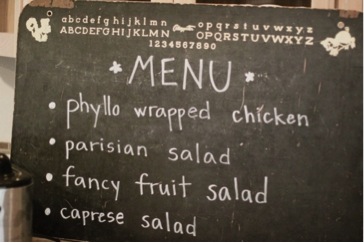 abcdefghijklmn opqrstuvwxyz
ABCDEFGHIJKLMN OPQRSTUVWXYZ
1234567890
* MENU *
• phyllo wrapped chicken
• parisian salad
• fancy fruit salad
• caprese salad